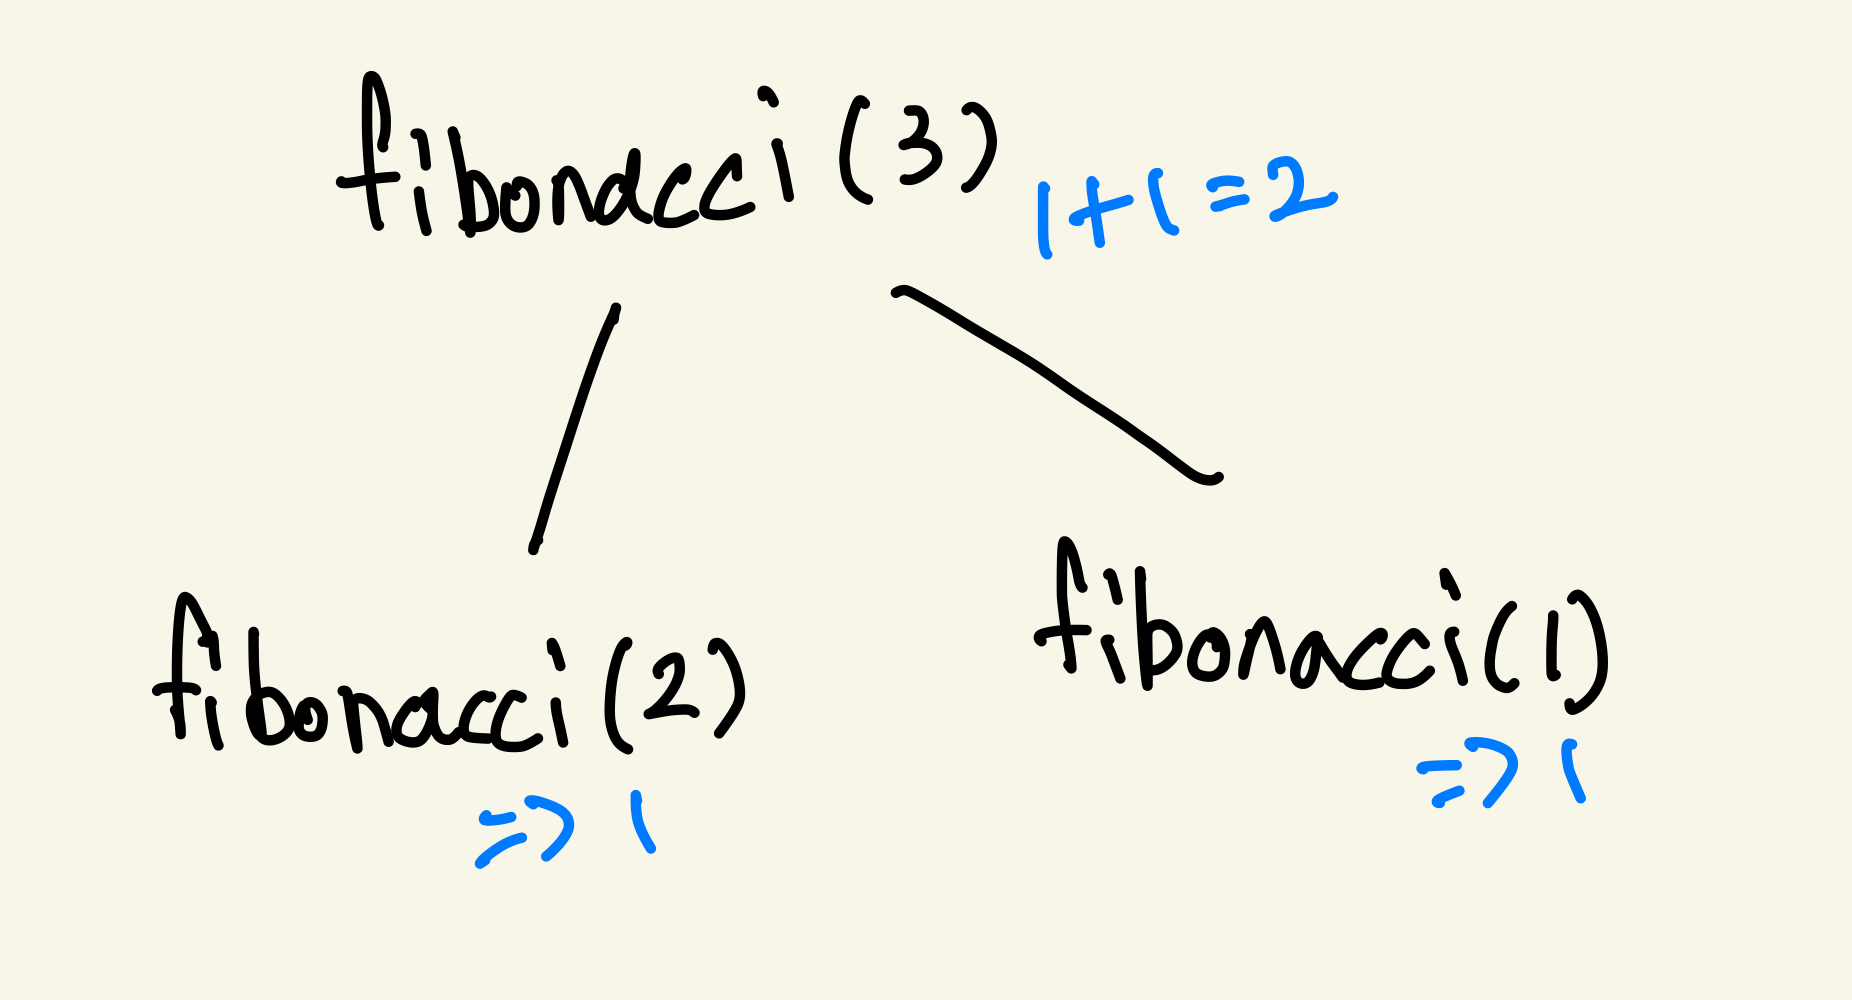 fibonacci(3)
1+1=2
fibonacci(2)
=> 1
fibonacci(1)
=> 1